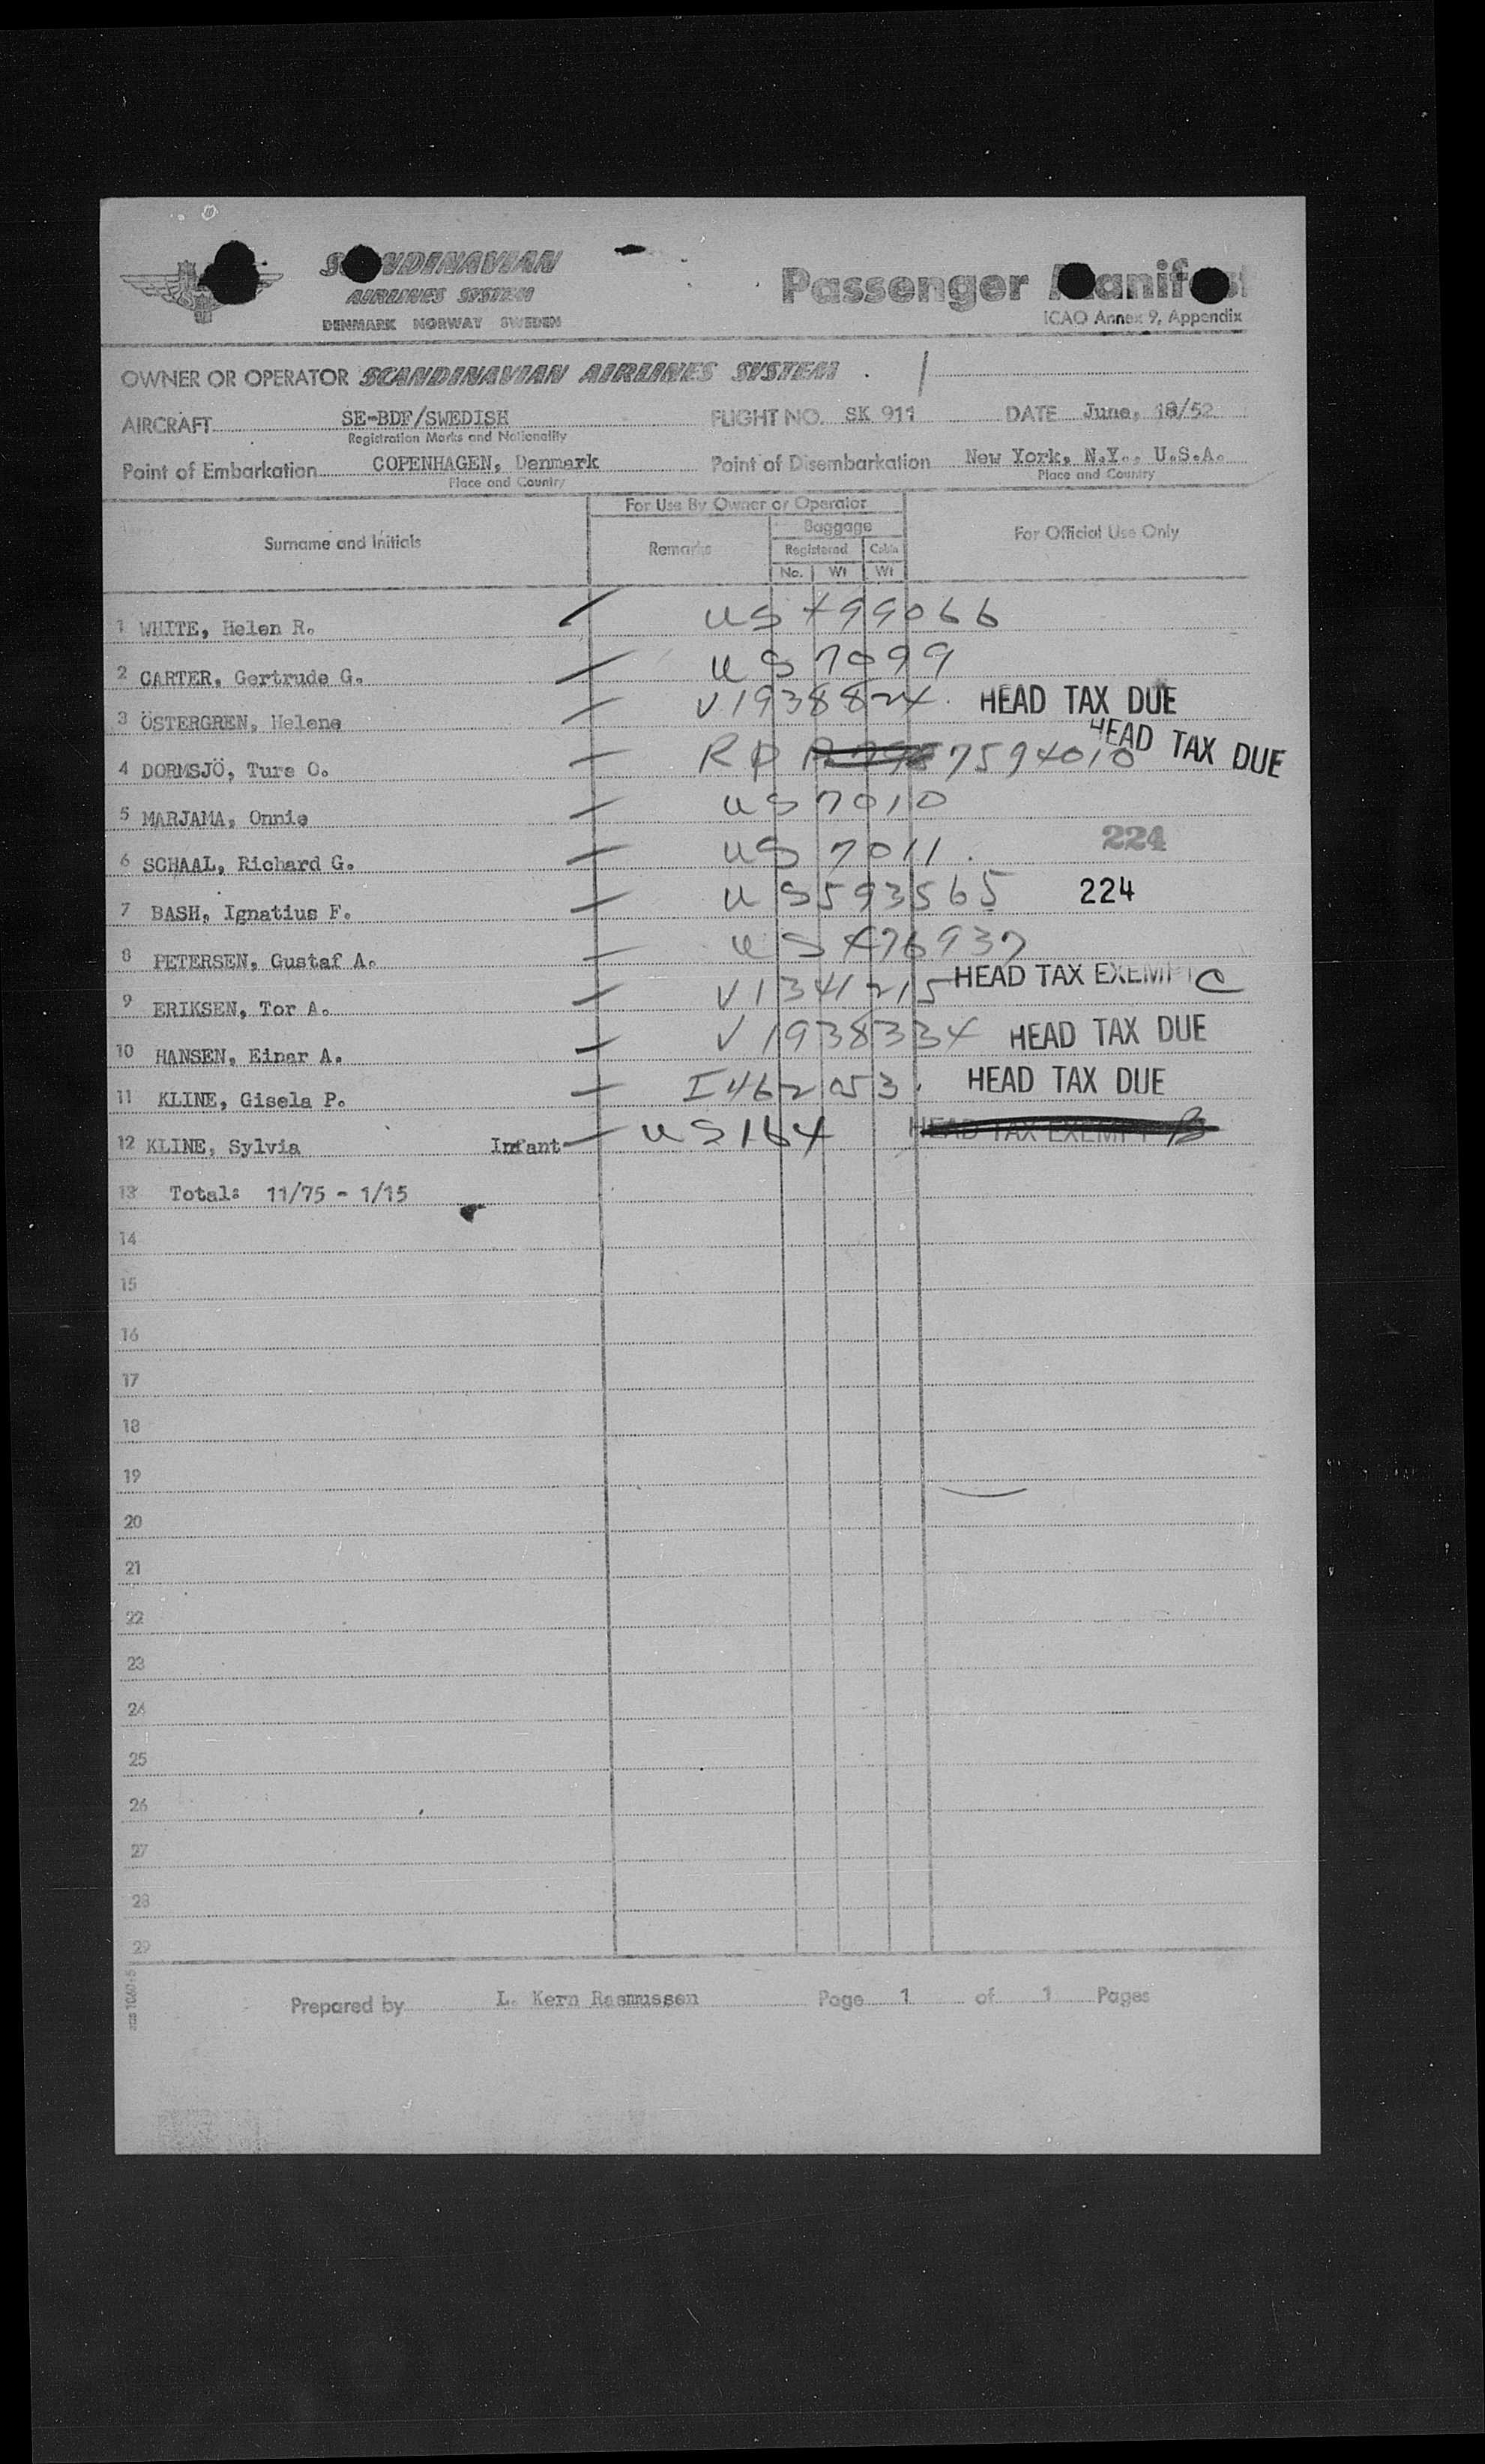 SCANDINAVIAN
AIRLINES SYSTEM
DENMARK NORWAY SWEDEN
Passenger Manifest
ICAO Annex 9, Appendix
OWNER OR OPERATOR SCANDINAVIAN AIRLINES SYSTEM
AIRCRAFT SE-BDF/SWEDISH FLIGHT NO. SK 911 DATE June, 18/52
Registration Marks and Nationality
Point of Embarkation COPENHAGEN, Denmark Point of Disembarkation New York, N.Y., U.S.A.
Place and Country Place and Country
For Use By Owner or Operator
Surname and Initials Remarks Baggage For Official Use Only
Registered Cabin
No. Wt Wt
1 WHITE, Helen R. US 499066
2 CARTER, Gertrude G. US 7099
3 ÖSTERGREN, Helene V1938824. HEAD TAX DUE
4 DORMSJÖ, Ture O. RP 7594010 HEAD TAX DUE
5 MARJAMA, Onnie US 7010
6 SCHAAL, Richard G. US 7011. 224
7 BASH, Ignatius F. US 593565 224
8 PETERSEN, Gustaf A. US 476937
9 ERIKSEN, Tor A. V1341215 HEAD TAX EXEMPT C
10 HANSEN, Einar A. V1938334 HEAD TAX DUE
11 KLINE, Gisela P. I462053. HEAD TAX DUE
12 KLINE, Sylvia Infant US164 HEAD TAX EXEMPT B
13 Total: 11/75 - 1/15
14
15
16
17
18
19
20
21
22
23
24
25
26
27
28
29
Prepared by L. Kern Rasmussen Page 1 of 1 Pages